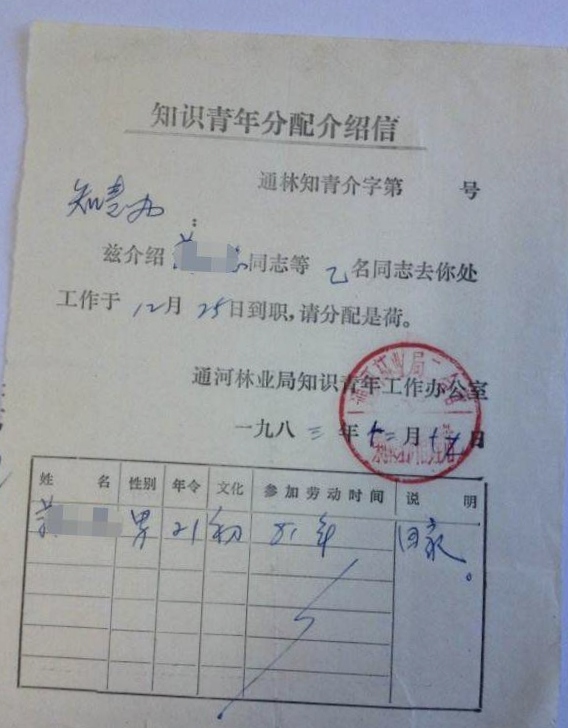 知识青年分配介绍信
通林知青介字第 号
知青办：
兹介绍 同志等 乙名同志去你处
工作于 12月 25日到职，请分配是荷。
通河林业局知识青年工作办公室
一九八三年十二月 日
姓 名 性别 年令 文化 参加劳动时间 说 明
男 21 初 81年 回家。